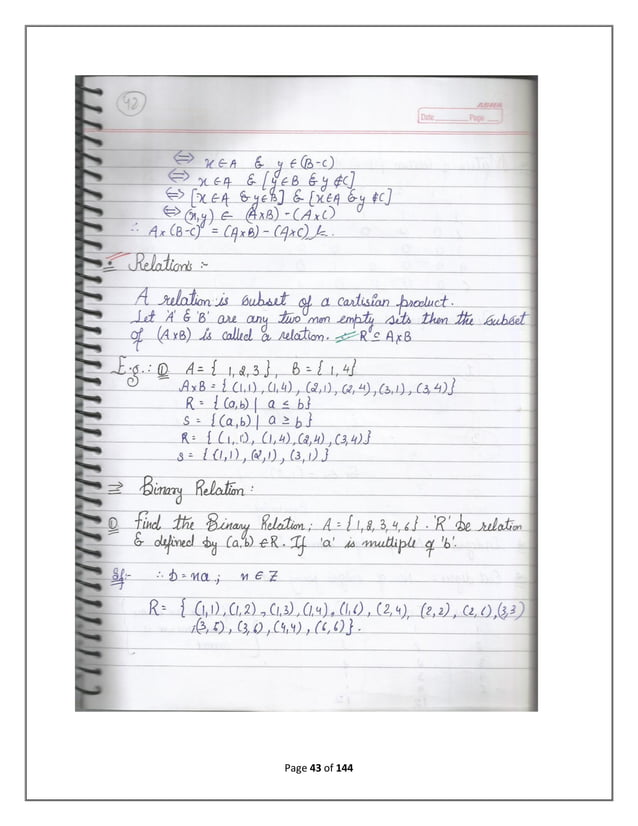 42
ASHA
Date Page
⇔ x ∈ A & y ∈ (B-C)
⇔ x ∈ A & [y ∈ B & y ∉ C]
⇔ [x ∈ A & y ∈ B] & [x ∈ A & y ∉ C]
⇔ (x,y) ∈ (A×B) - (A×C)
∴ A×(B-C) = (A×B) - (A×C)
Relations :-
A relation is subset of a cartisian product.
Let 'A' & 'B' are any two non empty sets then the subset
of (A×B) is called a relation. R ⊆ A×B
E.g.: ① A = { 1,2,3 }, B = { 1, 4 }
A×B = { (1,1), (1,4), (2,1), (2,4), (3,1), (3,4) }
R = { (a,b) | a ≤ b }
S = { (a,b) | a ≥ b }
R = { (1,1), (1,4), (2,4), (3,4) }
S = { (1,1), (2,1), (3,1) }
⇒ Binary Relation :
① Find the Binary Relation; A = { 1,2,3,4,6 }. 'R' be relation
& defined by (a,b) ∈ R. If 'a' is multiple of 'b'.
Sol:- ∴ b = na ; n ∈ Z
R = { (1,1), (1,2), (1,3), (1,4), (1,6), (2,4), (2,2), (2,6), (3,3)
, (3,6), (4,4), (6,6) }.
Page 43 of 144